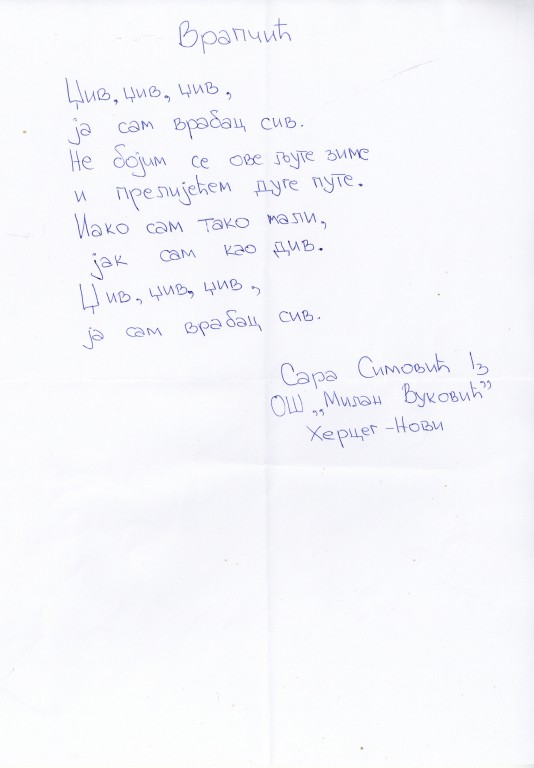 Врапчић
Џив, џив, џив,
ја сам врабац сив.
Не бојим се ове љуте зиме
и прелијећем дуге путе.
Иако сам тако мали,
јак сам као див.
Џив, џив, џив,
ја сам врабац сив.
Сара Симовић I3
ОШ „Милан Вуковић”
Херцег-Нови